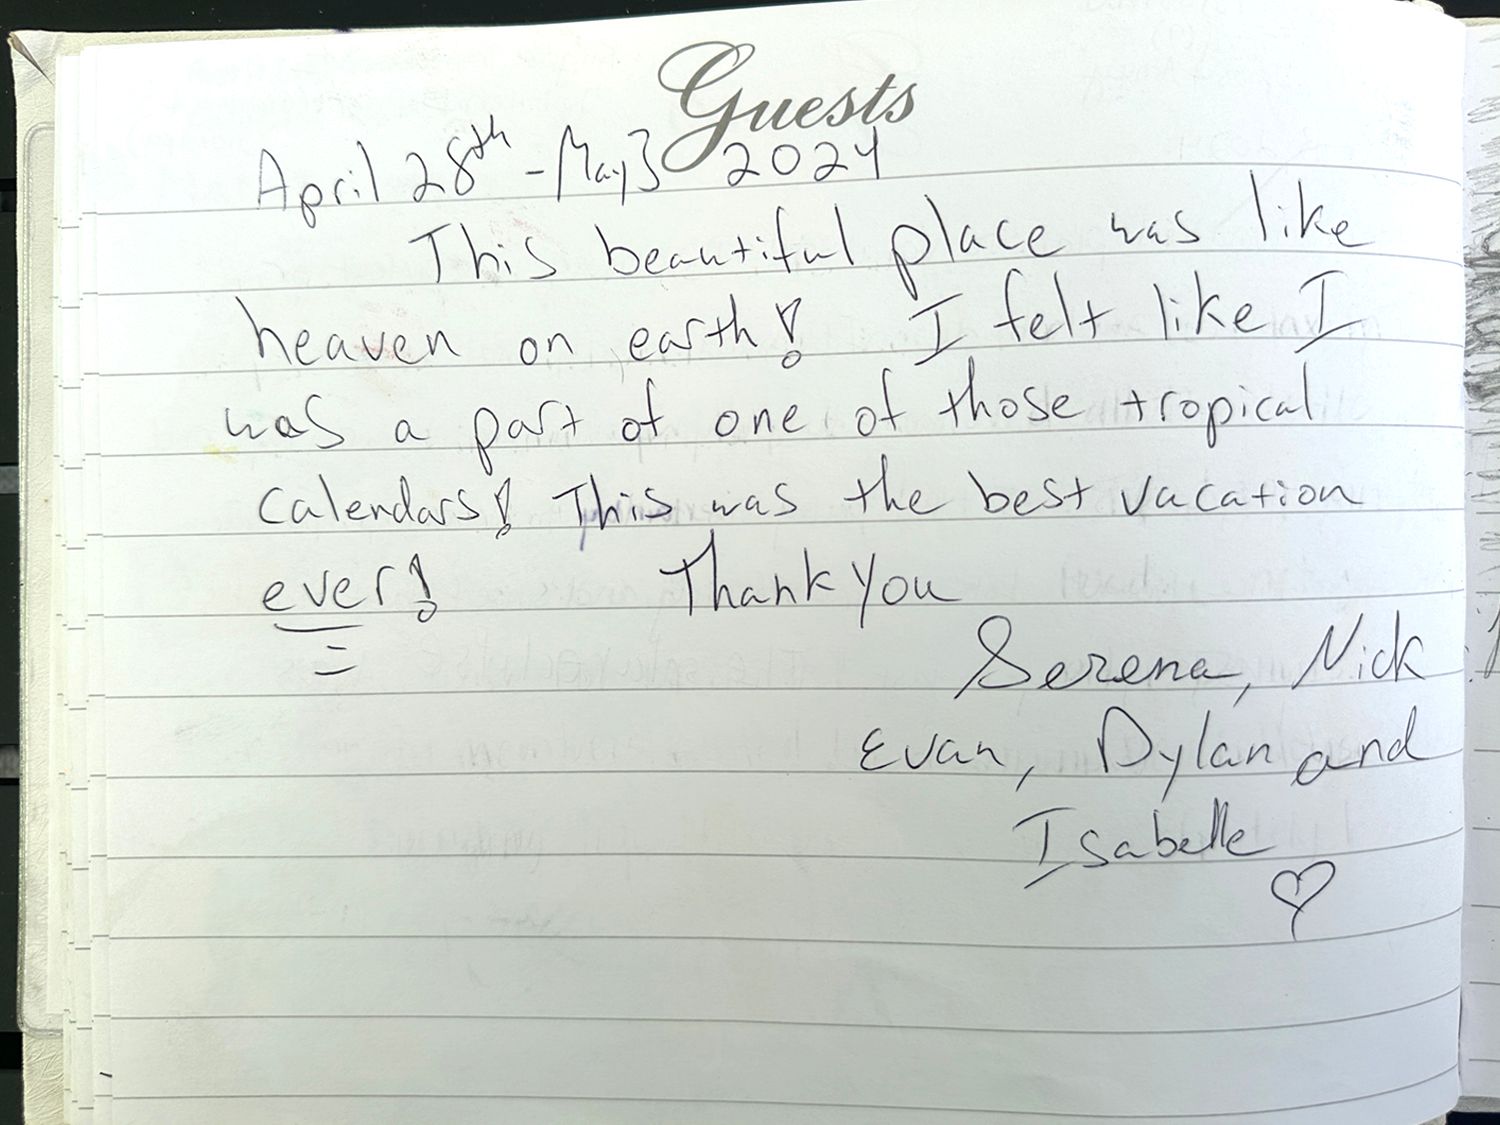 Guests
April 28th - May 3 2024
This beautiful place was like
heaven on earth! I felt like I
was a part of one of those tropical
calendars! This was the best vacation
ever! Thank You
Serena, Nick
Evan, Dylan and
Isabelle